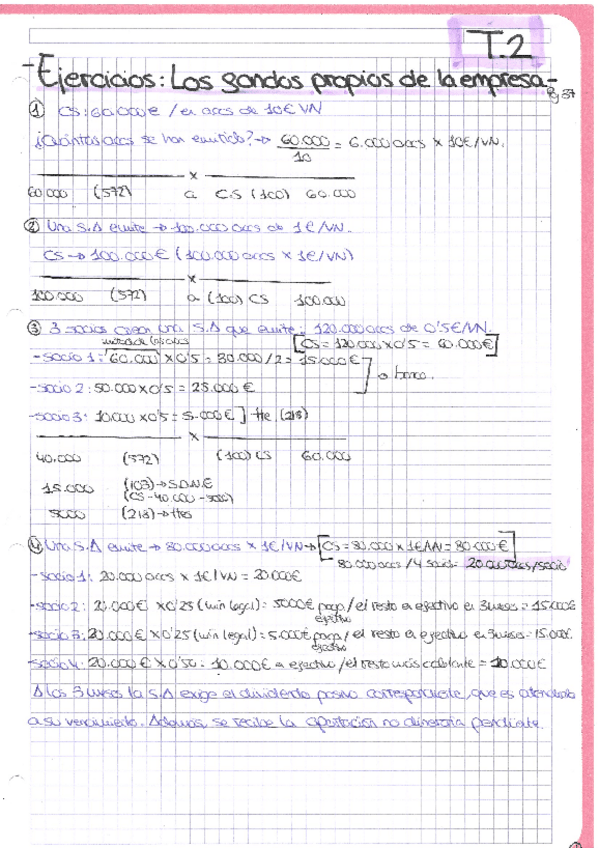 T.2
- Ejercicios: Los fondos propios de la empresa -
Pg 37
① CS: 60.000€ / en accs de 10€ VN
¿Cuántas accs se han emitido? → 60.000 / 10 = 6.000 accs x 10€/VN.
x
60.000 (572) a CS (100) 60.000
② Una S.A emite → 100.000 accs de 1€/VN.
CS → 100.000€ (100.000 accs x 1€/VN)
x
100.000 (572) a (100) CS 100.000
③ 3 socios crean una S.A que emite: 120.000 accs de 0'5€/VN.
mitad de las accs [CS = 120.000 x 0'5 = 60.000€]
- Socio 1: 60.000 x 0'5 = 30.000 / 2 = 15.000€
→ banco.
- Socio 2: 50.000 x 0'5 = 25.000€
- Socio 3: 10.000 x 0'5 = 5.000€] tte. (218)
x
40.000 (572) (100) CS 60.000
15.000 (103) → S.D.N.E
(CS - 40.000 - 5000)
5000 (218) → ttes
④ Una S.A emite → 80.000 accs x 1€/VN → [CS = 80.000 x 1€/VN = 80.000€]
80.000 accs / 4 socios = 20.000 accs/socio
- Socio 1: 20.000 accs x 1€/VN = 20.000€
- Socio 2: 20.000€ x 0'25 (min legal) = 5000€ paga / el resto en efectivo en 3 meses = 15.000€
efectivo
- Socio 3: 20.000€ x 0'25 (min legal) = 5.000€ paga / el resto en efectivo en 3 meses = 15.000€.
efectivo
- Socio 4: 20.000€ x 0'50 = 10.000€ en efectivo / el resto más adelante = 10.000€
A los 3 meses la S.A exige el dividendo pasivo correspondiente, que es atendido
a su vencimiento. Además, se recibe la aportación no dineraria pendiente.